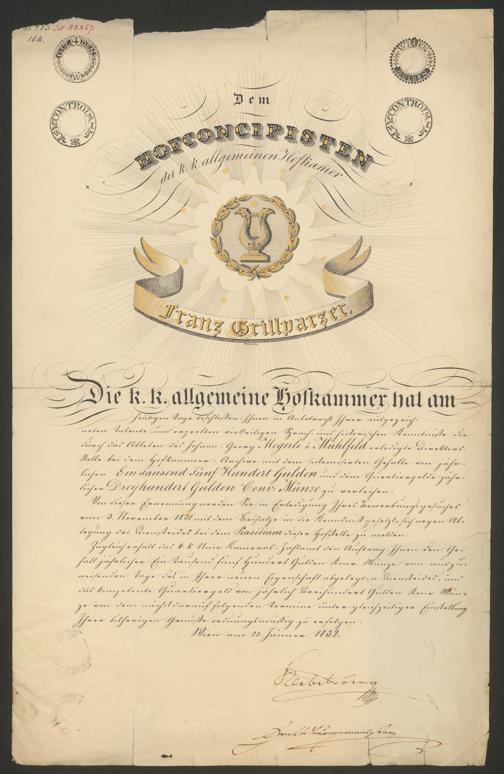 Dem
HOFCONCIPISTEN
der k. k. allgemeinen Hofkamer
Franz Grillparzer.
Die k. k. allgemeine Hofkammer hat am
heutigen Tage beschlossen, Ihnen in Anbetracht Ihrer ausgezeich-
neten Talente, und erprobten vielseitigen und Kenntnisse die
durch das Ableben des Johann Georg Megerle v. Mühlfeld erledigte Direktors
Stelle bei dem Hofkammer-Archive mit dem Gehalte von jähr-
lichen Ein tausend fünf Hundert Gulden und dem Quartiergelde jähr-
licher Dreyhundert Gulden Conv: Münze zu verleihen.
Von dieser Ernennung werden Sie in Erledigung Ihres Bewerbungsgesuches
vom 3. November 1831 mit dem Beisatze in die Kenntniß gesetzt, sich wegen Ab-
legung des Diensteides bei dem Präsidium dieser Hofstelle zu melden.
Zugleich erhält das k. k. Univ. Kameral-Zahlamt den Auftrag Ihnen den Ge-
halt jährlicher Ein tausend fünf Hundert Gulden Konv. Münze vom
Tage des in Ihrer neuen Eigenschaft abgelegten Diensteides, und
das Quartiergeld von jährlich dreihundert Gulden Konv. Mün-
ze von dem nächst darauf folgenden Termine unter gleichzeitiger Einstellung
Ihrer bisherigen Genüsse ordnungsmäßig zu erfolgen.
Wien am 23. Jänner 1832.